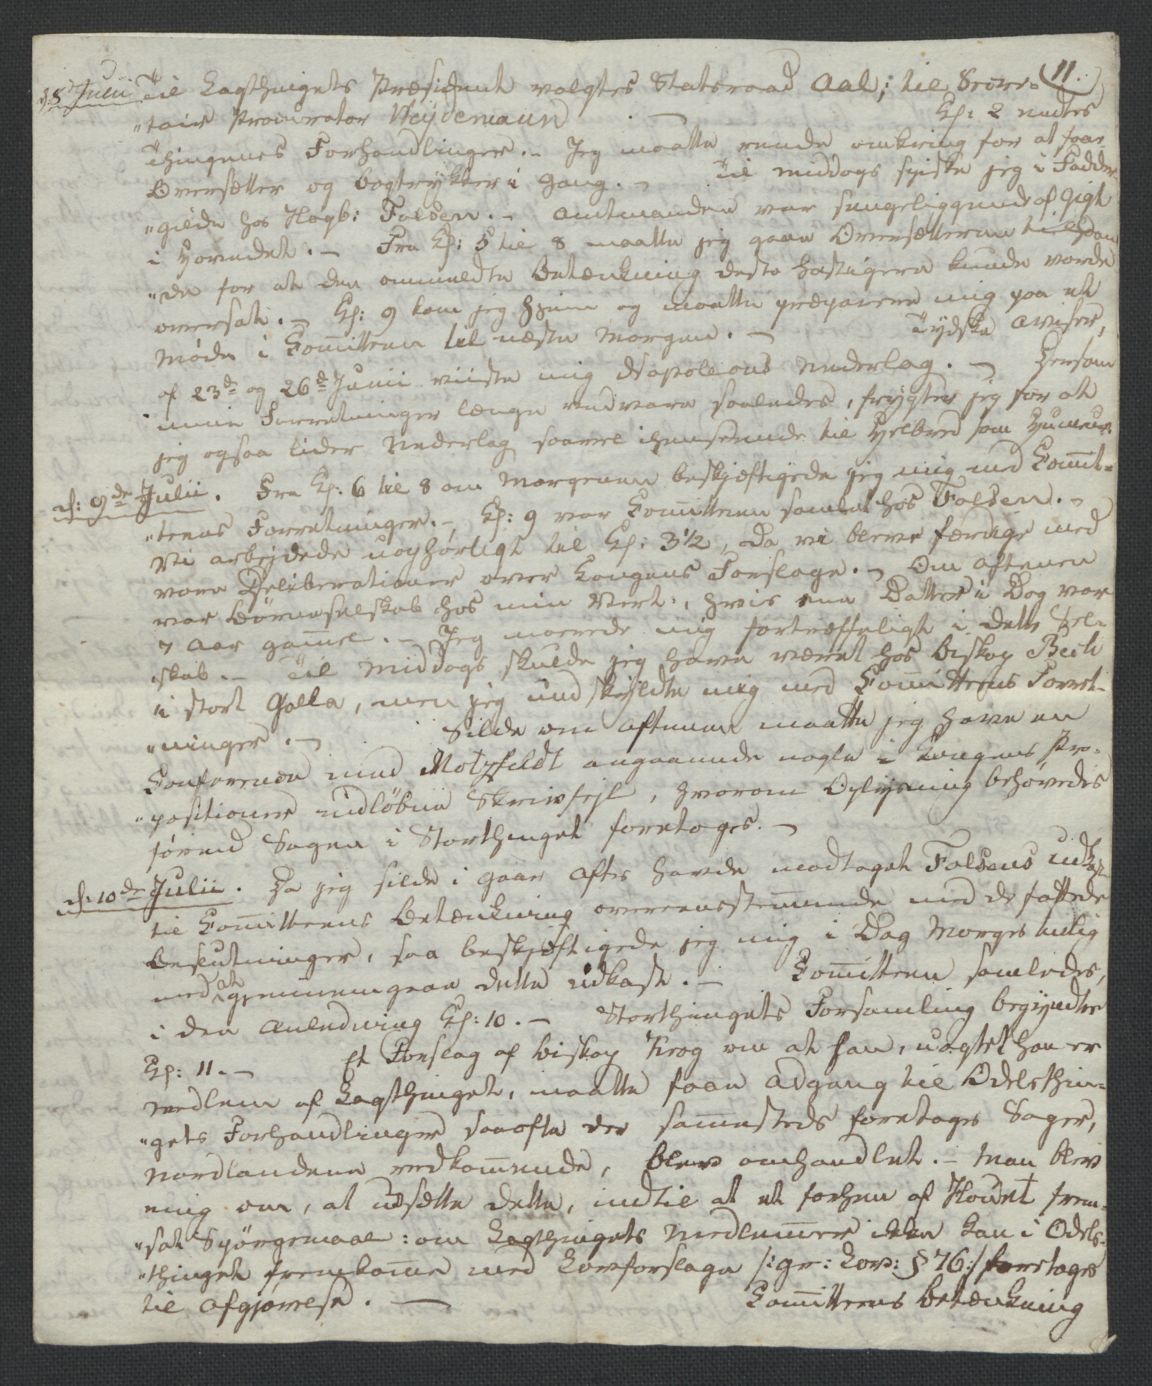 11.
d: 8 Julii Til Lagthingets Præsident valgtes Statsraad Aal; til Secre-
"tair Procurator Weidemann. — Kl: 2 endtes
Thingenes Forhandlinger. — Jeg maatte rende omkring for at faae
Oversætter og Bogtrykker i Gang. — Til Middags spiste jeg i Fadder-
"gilde hos Hagb: Falsen. — Amtmanden var sengeliggende af Gigt
i Hovedet. — Fra Kl: 5 til 8 maatte jeg gaae Oversætteren tilhaan-
"de for at den ommeldte Betænkning desto hastigere kunde vorde
oversat. — Kl: 9 kom jeg hjem og maatte præparere mig paa et
Møde i Committeen til næste Morgen. — Tydske Aviser,
af 23de og 26de Junii viiste mig Napoleons Nederlag. — Hersom
mine Forretninger længe vedvare saaledes, frygter jeg for at
jeg ogsaa lider Nederlag saavel i henseende til Helbred som Humeur.
d: 9de Julii. Fra Kl: 6 til 8 om Morgenen beskjæftigede jeg mig med Commit-
"teens Forretninger. — Kl: 9 var Committeen samlet hos Falsen. —
Vi arbejdede uophørligt til Kl: 3½, da vi bleve færdige med
vore Deliberationer over Kongens Forslage. — Om Aftenen
var Børneselskab hos min Vert, hvis ene Datter i Dag var
7 Aar gammel. — Jeg morede mig fortræffeligt i dette Sel-
skab. — Til Middags skulde jeg have været hos Biskop Bech
i stort Galla, men jeg undskyldte mig med Committeens Forret-
"ninger. — Silde om Aftenen maatte jeg have en
Conference med Motzfeldt angaaende nogle i Kongens Pro-
"positioner indløbne Skrivfejl, hvorom Oplysning behøvedes
førend Sagen i Storthinget foretoges. —
d: 10de Julii. Da jeg silde i Gaar Aftes havde modtaget Falsens Udkast
til Committeens Betænkning overeensstemmende med de fattede
Beslutninger, saa beskjæftigede jeg mig i Dag Morges tidlig
med at gjennemgaae dette Udkast. — Committeen samledes,
i den Anledning Kl: 10. — Storthingets Forsamling begyndte
Kl: 11. — Et Forslag af Biskop Krog om at han, uagtet han er
Medlem af Lagthinget, maatte faae Adgang til Odelsthin-
"gets Forhandlinger saaofte der sammesteds foretages Sager,
Nordlandene vedkommende, blev omhandlet. — Man blev
enig om, at udsætte dette, indtil at et forhen af Hount frem-
"sat Spörgsmaal: om Lagthingets Medlemmer ikke kan i Odels-
"thinget fremkomme med Lovforslage /:gr: Lov: § 76:/ foretoges
til Afgjørelse. — Committeens Betænkning